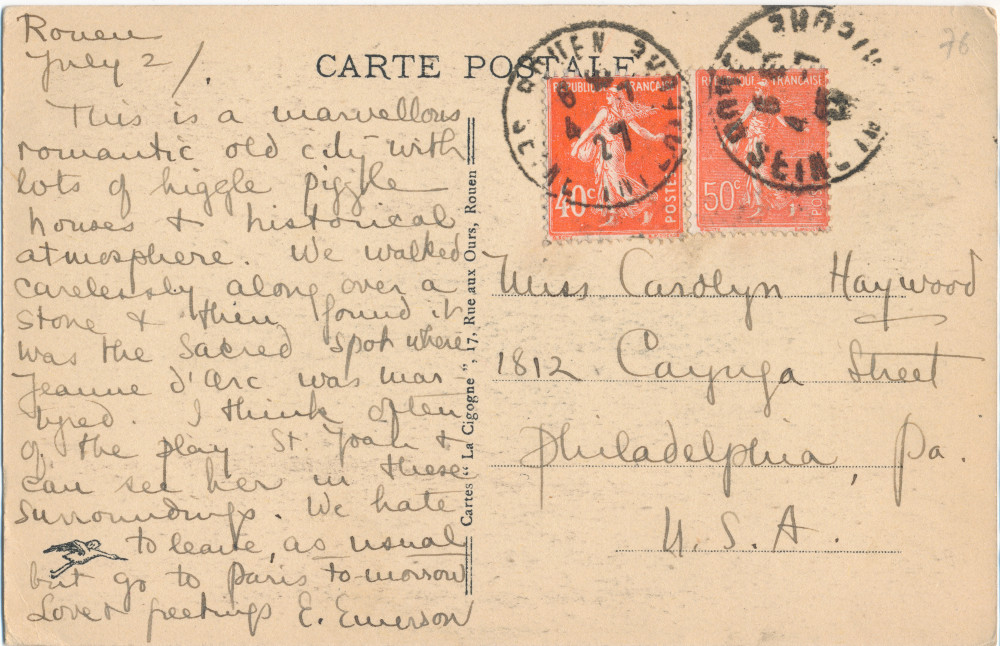 Rouen
July 2/.
This is a marvellous
romantic old city with
lots of higgle piggle
houses & historical
atmosphere. We walked
carelessly along over a
stone & then found it
was the sacred spot where
Jeanne d'Arc was mar
tyred. I think often
of the play St. Joan &
can see her in these
surroundings. We hate
to leave, as usual
but go to Paris to-morrow
Love & greetings E. Emerson
CARTE POSTALE
Cartes "La Cigogne", 17, Rue aux Ours, Rouen
ROUEN
4 27
REPUBLIQUE FRANÇAISE
40c
POSTES
REPUBLIQUE FRANÇAISE
50c
76
Miss Carolyn Haywood
1812 Cayuga Street
Philadelphia, Pa.
U.S.A.